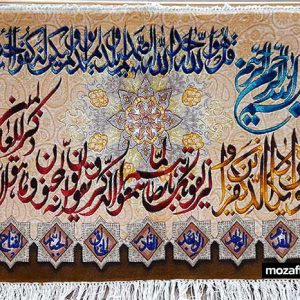 بسم الله الرحمن الرحیم
قل هو الله احد الله الصمد لم یلد و لم یولد و لم یکن له کفوا
و ان یکاد الذین کفروا لیزلقونک بابصارهم لما سمعوا الذکر و یقولون انه لمجنون و ما هو الا ذکر للعالمین
mozaf